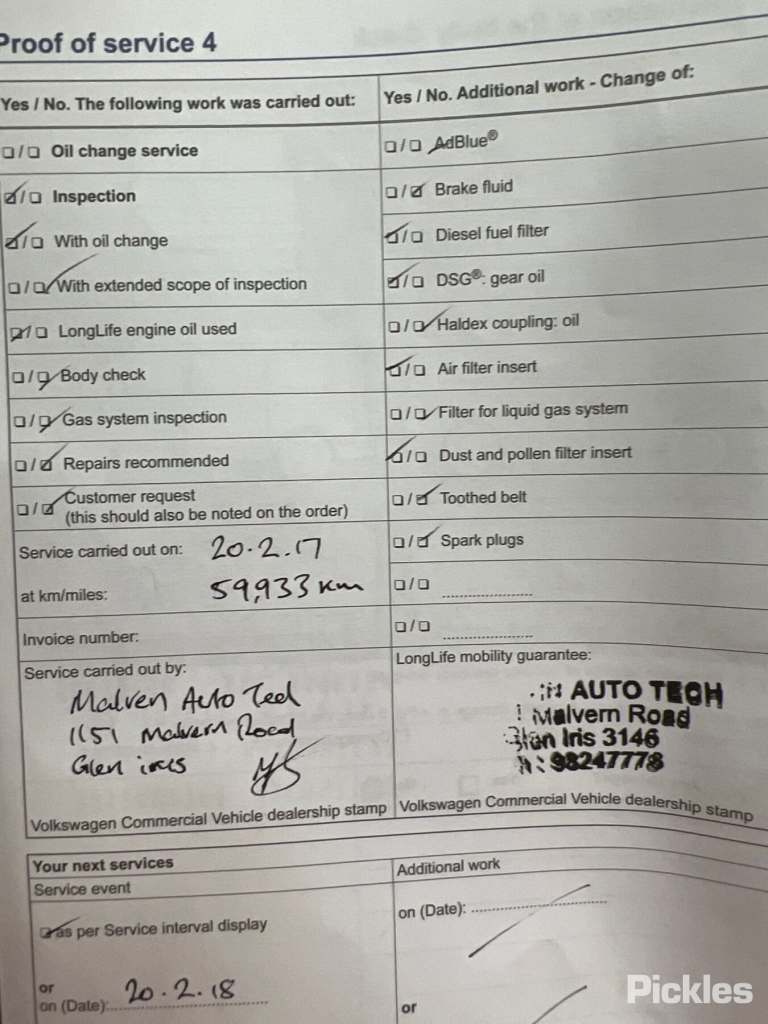 Proof of service 4
Yes / No. The following work was carried out:
Oil change service
Inspection
With oil change
With extended scope of inspection
LongLife engine oil used
Body check
Gas system inspection
Repairs recommended
Customer request
(this should also be noted on the order)
Service carried out on: 20.2.17
at km/miles: 59,933 km
Invoice number:
Service carried out by:
Malven Auto Ted
1151 Malvern Road
Glen
Volkswagen Commercial Vehicle dealership stamp
Yes / No. Additional work - Change of:
AdBlue®
Brake fluid
Diesel fuel filter
DSG®: gear oil
Haldex coupling: oil
Air filter insert
Filter for liquid gas system
Dust and pollen filter insert
Toothed belt
Spark plugs
LongLife mobility guarantee:
AUTO TECH
Malvern Road
Glen Iris 3146
: 98247778
Volkswagen Commercial Vehicle dealership stamp
Your next services
Service event
as per Service interval display
or
on (Date): 20.2.18
Additional work
on (Date):
or
Pickles